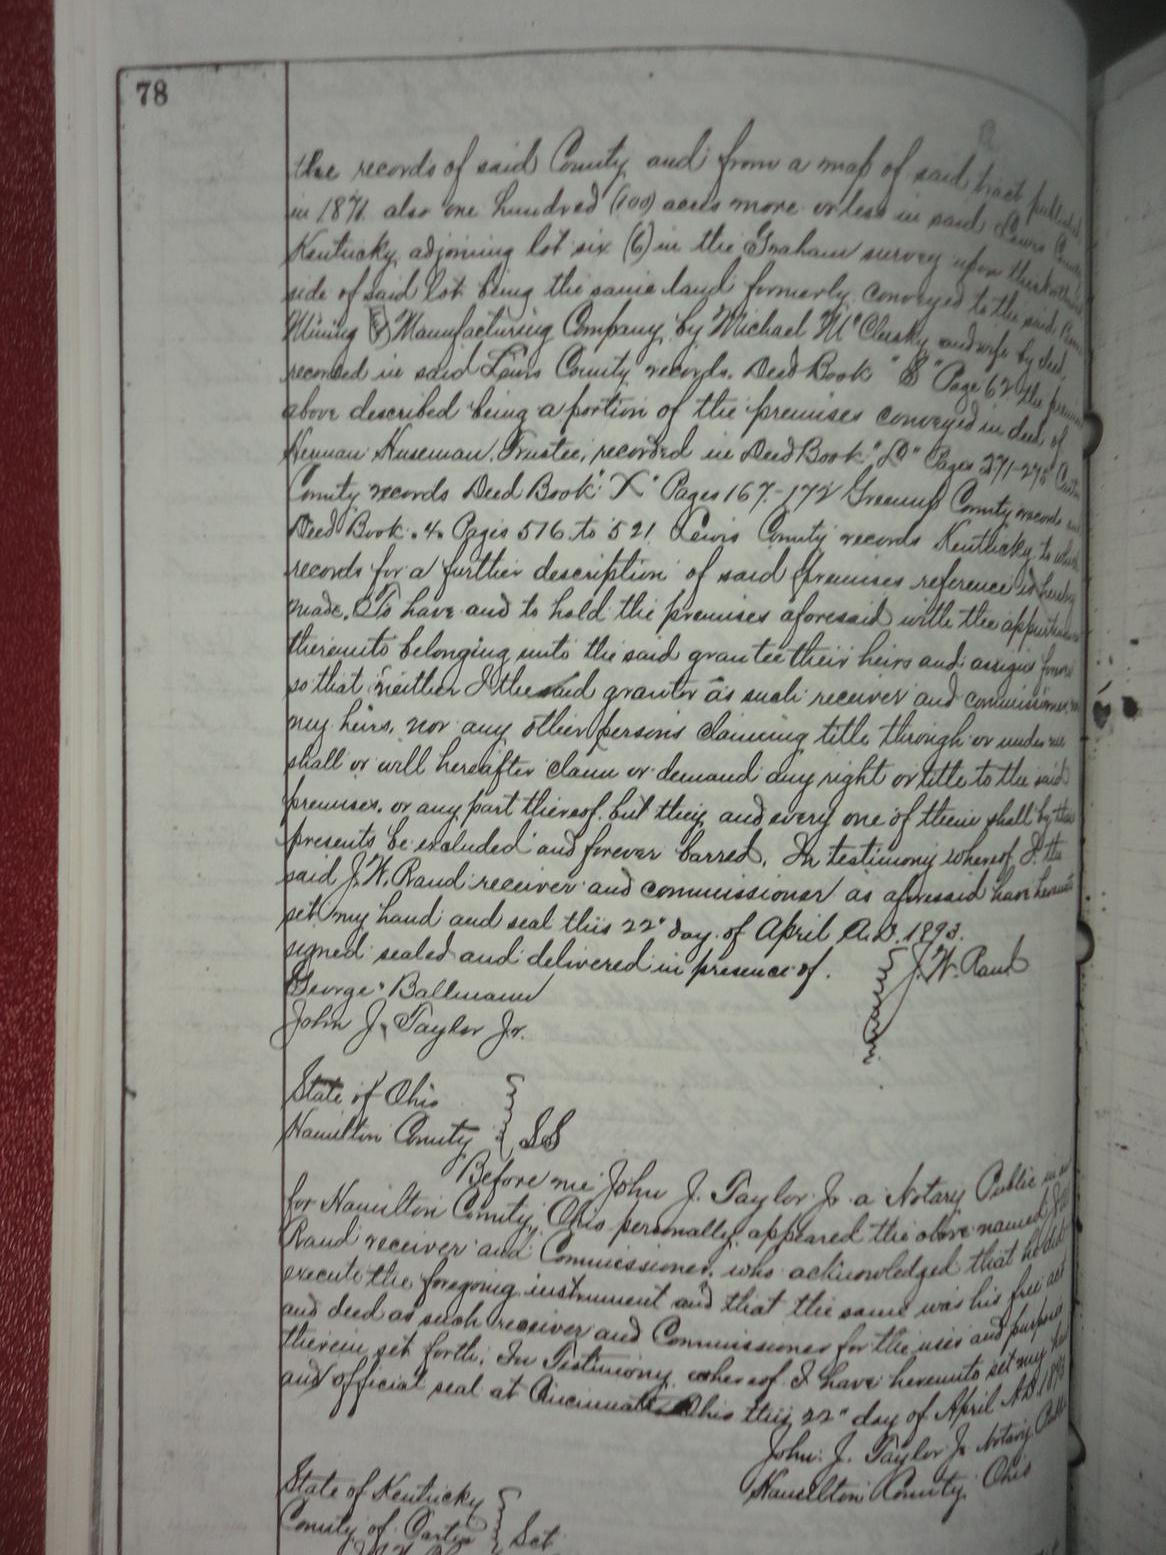 78
the records of said County and from a map of said tract published
in 1871 also one hundred (100) acres more or less in said Lewis County
Kentucky adjoining lot six (6) in the Graham survey upon the
side of said lot being the same land formerly conveyed to the said
Mining & Manufacturing Company by Michael McClusky and wife by deed
recorded in said Lewis County records. Deed Book "S" Page 62 the premises
above described being a portion of the premises conveyed in deed of
Herman Huseman, Trustee, recorded in Deed Book "D" Pages 271-275 Carter
County records Deed Book "X" Pages 167-172 Greenup County records and
Deed Book 4 Pages 516 to 521 Lewis County records Kentucky, to which
records for a further description of said premises reference is hereby
made. To have and to hold the premises aforesaid with the appurtenances
thereunto belonging unto the said grantee their heirs and assigns forever
so that neither I the said grantor as such receiver and commissioner, nor
my heirs, nor any other persons claiming title through or under me
shall or will hereafter claim or demand any right or title to the said
premises, or any part thereof. but they and every one of them shall by these
presents be excluded and forever barred. In testimony whereof, I the
said J. W. Raud receiver and commissioner as aforesaid have hereunto
set my hand and seal this 22" day of April A.D. 1893.
signed sealed and delivered in presence of. J. W. Raud
George Ballmann
John J. Taylor Jr.
State of Ohio
Hamilton County SS
Before me John J. Taylor Jr a Notary Public in and
for Hamilton County, Ohio personally appeared the above named J.W.
Raud receiver and Commissioner, who acknowledged that he did
execute the foregoing instrument and that the same was his free act
and deed as such receiver and Commissioner for the uses and purposes
therein set forth. In Testimony whereof I have hereunto set my hand
and official seal at Cincinnati Ohio this 22" day of April A.D. 1893
John. J. Taylor Jr Notary Public
Hamilton County Ohio
State of Kentucky
County of Carter Sct